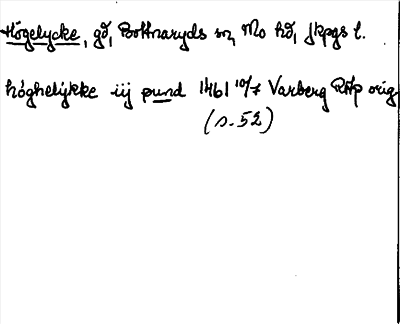 Högelycke, gd, Bottnaryds sn, Mo hd, Jkpgs l.
höghelykke iij pund 1461 10/7 Varberg RAp orig
(s. 52)